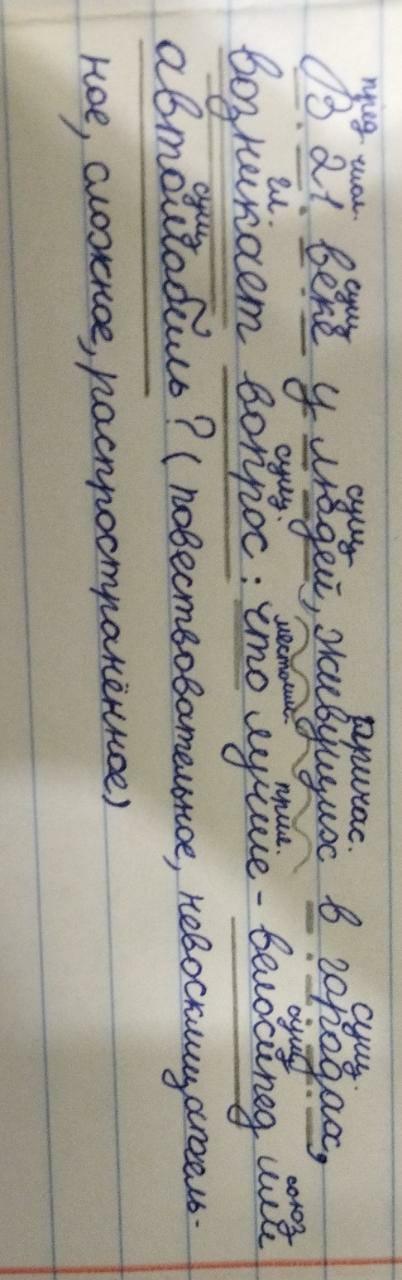 пред. числ. сущ сущ причас. сущ.
В 21 веке у людей, живущих в городах,
гл. сущ. местоим. прил. сущ союз
возникает вопрос: что лучше - велосипед или
сущ
автомобиль? (повествовательное, невосклицатель-
ное, сложное, распространённое)